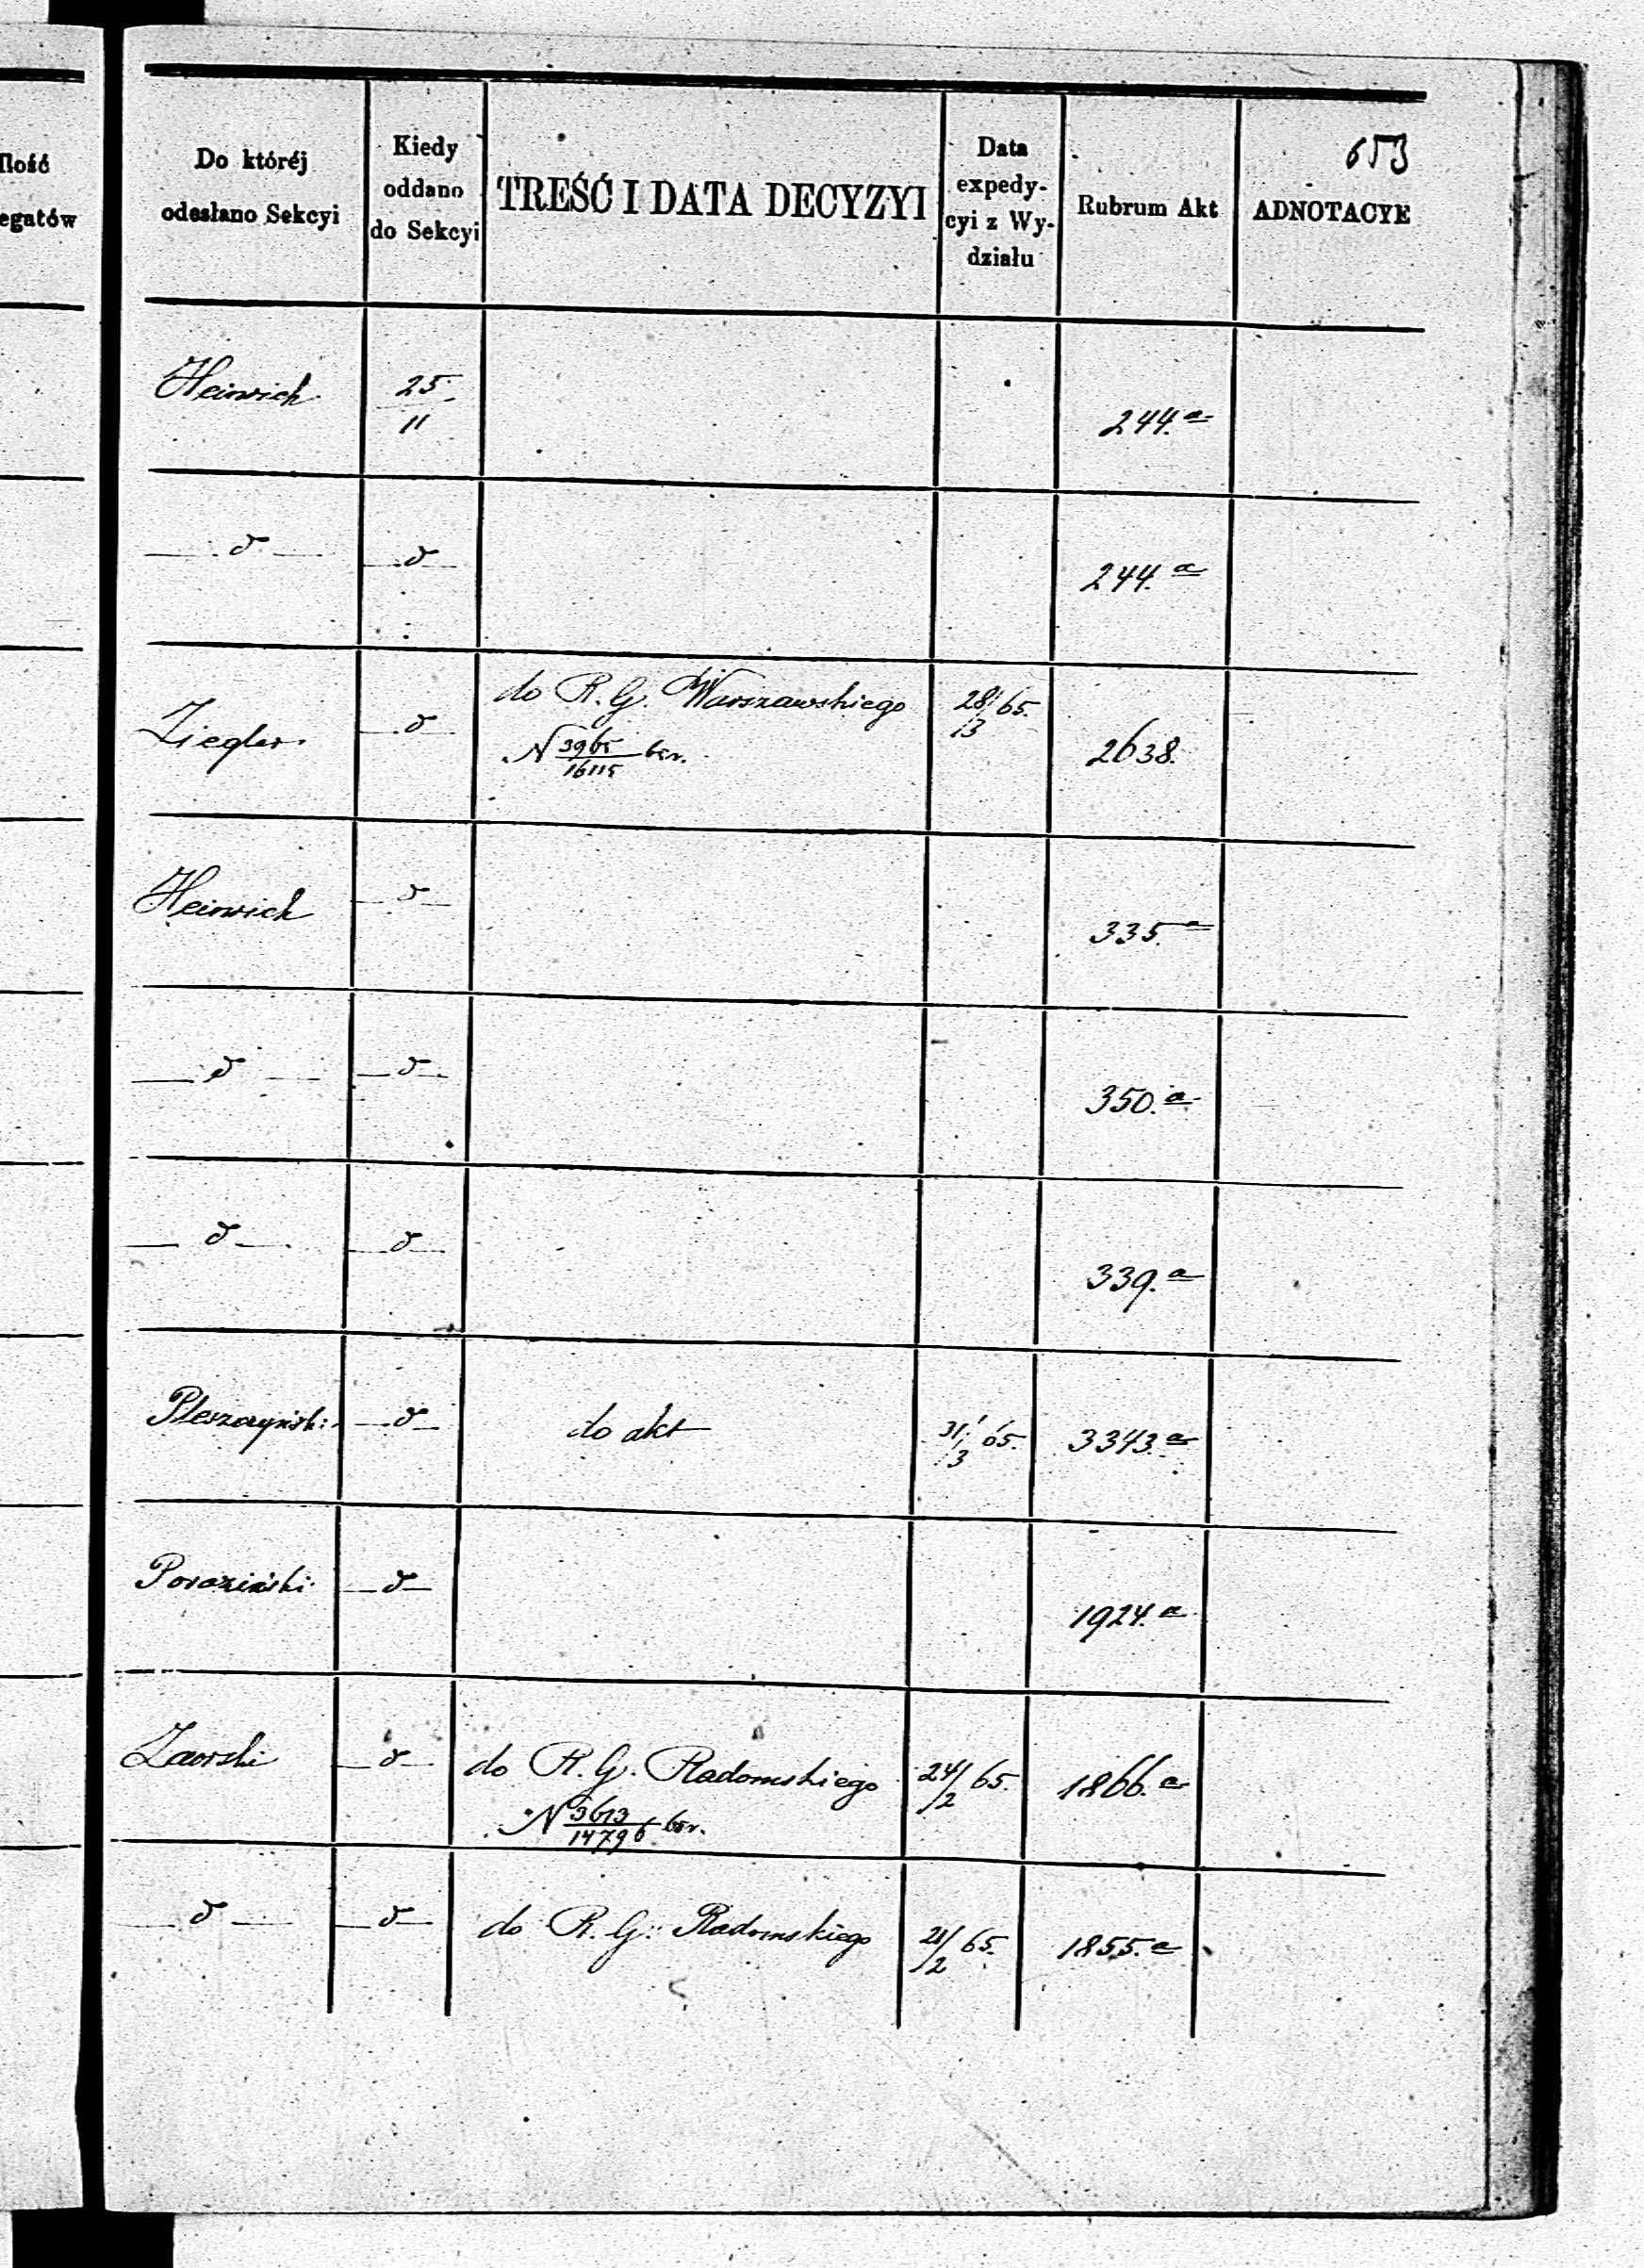 Ilość
egatów
Do któréj
odesłano Sekcyi
Kiedy
oddano
do Sekcyi
TREŚĆ I DATA DECYZYI
Data
expedy-
cyi z Wy-
działu
Rubrum Akt
653
ADNOTACYE
Heinrich 25/11 244.a
d d 244.a
Ziegler d do R. G. Warszawskiego 28/3 65. 2638.
N 3965/16115
Heinrich d 335.a
d d 350.a
d d 339.a
Pleszczyński d do akt 31/3 65. 3343.a
Poraziński d 1924.a
Zaorski d do R. G. Radomskiego 24/2 65. 1866.a
N 3613/14796
d d do R. G. Radomskiego 21/2 65. 1855.a